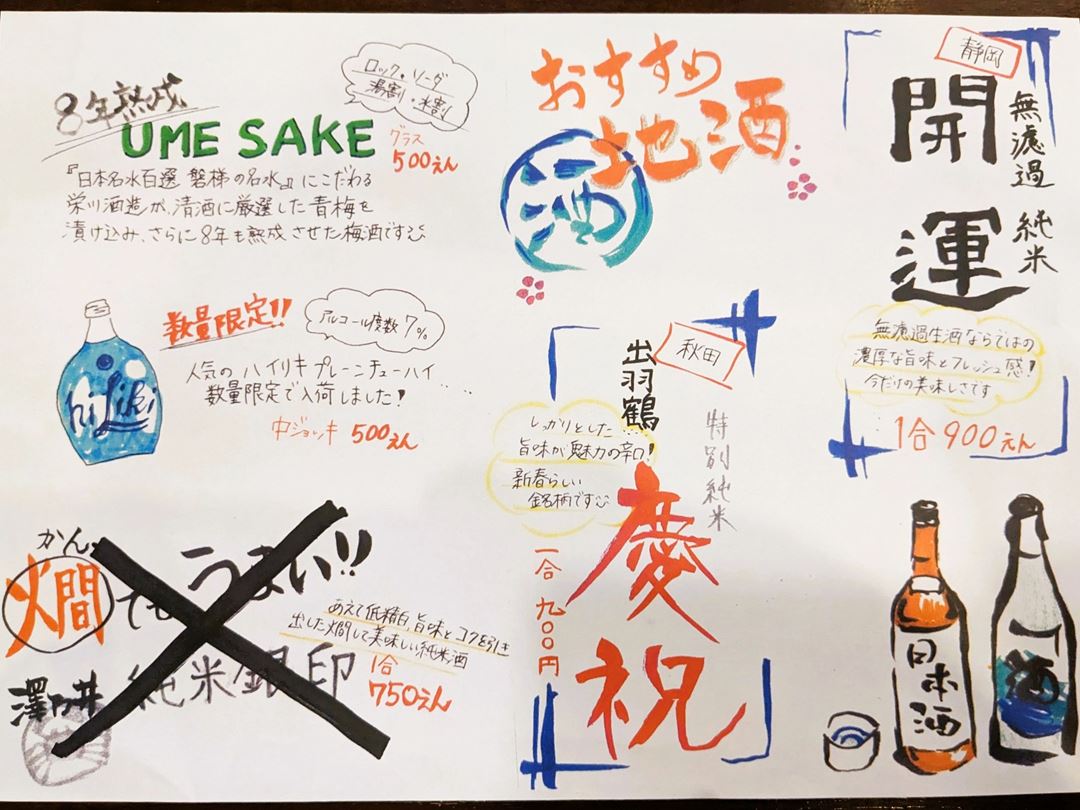 8年熟成
UME SAKE
ロック・ソーダ
湯割・水割
グラス
500えん
『日本名水百選 磐梯の名水』にこだわる
栄川酒造が、清酒に厳選した青梅を
漬け込み、さらに8年も熟成させた梅酒です
数量限定!!
アルコール度数7%
人気のハイリキプレーンチューハイ...
数量限定で入荷しました!
中ジョッキ 500えん
hiLiki
かん
燗でもうまい!!
あえて低精白、旨味とコクを引き
出した燗して美味しい純米酒
澤乃井 純米銀印
1合
750えん
おすすめ
地酒
酒
秋田
出羽鶴
特別純米
慶祝
しっかりとした...
旨味が魅力の辛口!
新春らしい
銘柄です
一合 九〇〇円
静岡
開運
無濾過 純米
無濾過生酒ならではの
濃厚な旨味とフレッシュ感!
今だけの美味しさです
1合900えん
日本酒
酒